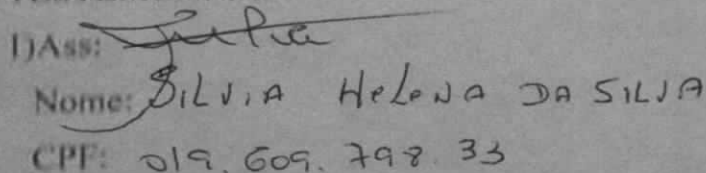 1)Ass:
Nome: SILVIA HeLeNA DA SILVA
CPF: 019.609.798.33